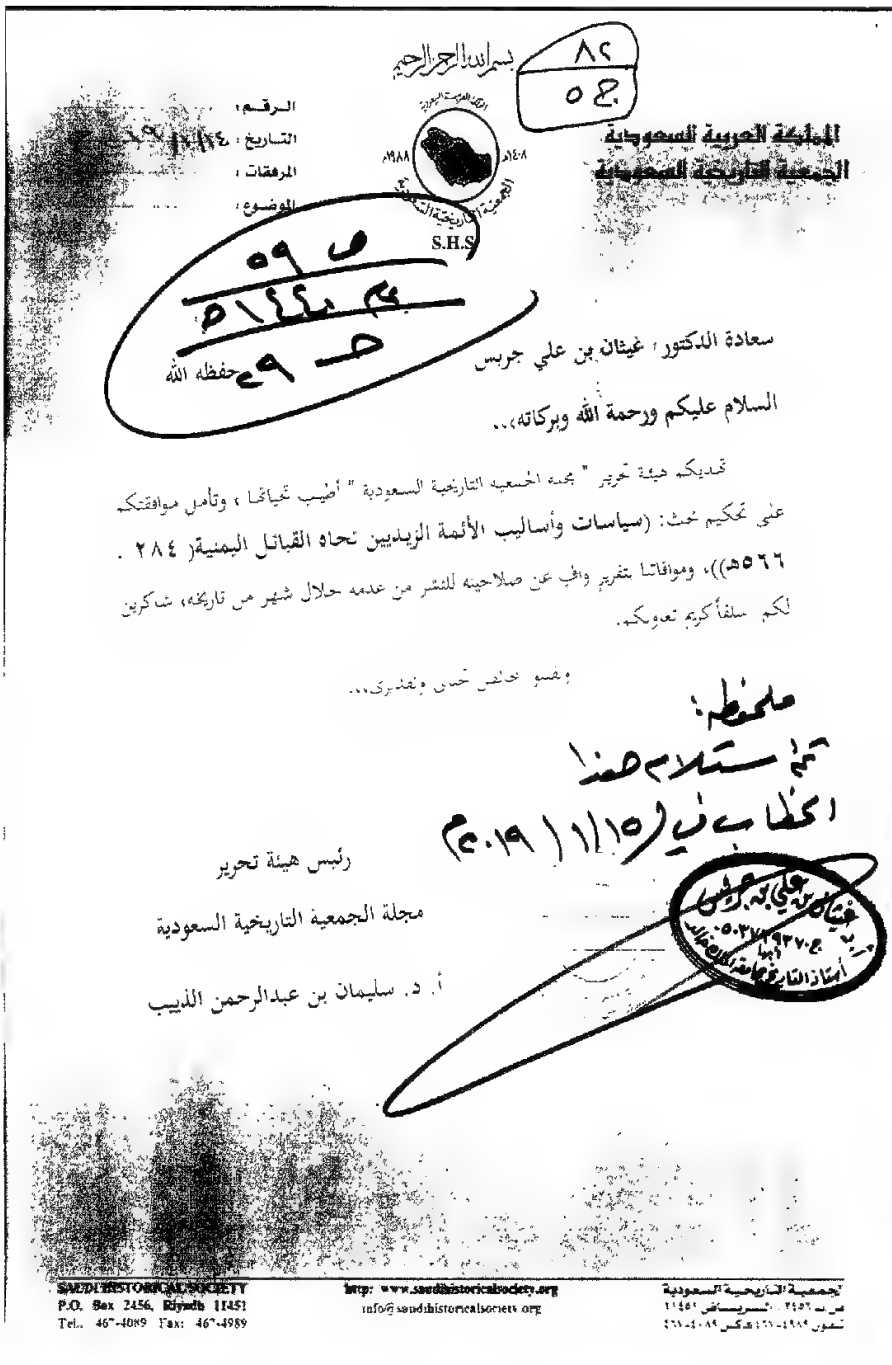 بسم الله الرحمن الرحيم
٨٢
ج ٥
المملكة العربية السعودية
الجمعية التاريخية السعودية
الرقم:
التاريخ:
المرفقات:
الموضوع:
١٤٠٨هـ
١٩٨٨م
الجمعية التاريخية السعودية
S.H.S
ص ٥٩
١٤٤٠هـ
سعادة الدكتور: غيثان بن علي جريس
حفظه الله
السلام عليكم ورحمة الله وبركاته،..
تهديكم هيئة تحرير " مجلة الجمعية التاريخية السعودية " أطيب تحياتها، وتأمل موافقتكم
على تحكيم بحث: (سياسات وأساليب الأئمة الزيديين تجاه القبائل اليمنية( ٢٨٤ .
٥٦٦هـ))، وموافاتنا بتقرير وافي عن صلاحيته للنشر من عدمه خلال شهر من تاريخه، شاكرين
لكم سلفاً كريم تعاونكم.
ملحوظة:
تم استلام هذا
الخطاب في (١٥/ ١/ ٢٠١٩م)
رئيس هيئة تحرير
مجلة الجمعية التاريخية السعودية
أ. د. سليمان بن عبدالرحمن الذييب
غيثان بن علي بن جريس
أبها
SAUDI HISTORICAL SOCIETY
P.O. Box 2456, Riyadh 11451
Tel.. 467-4089 Fax: 467-4989
http: www.saudihistoricalsociety.org
info@saudihistoricalsociety.org
الجمعية التاريخية السعودية
ص.ب ٢٤٥٦ . الرياض ١١٤٥١